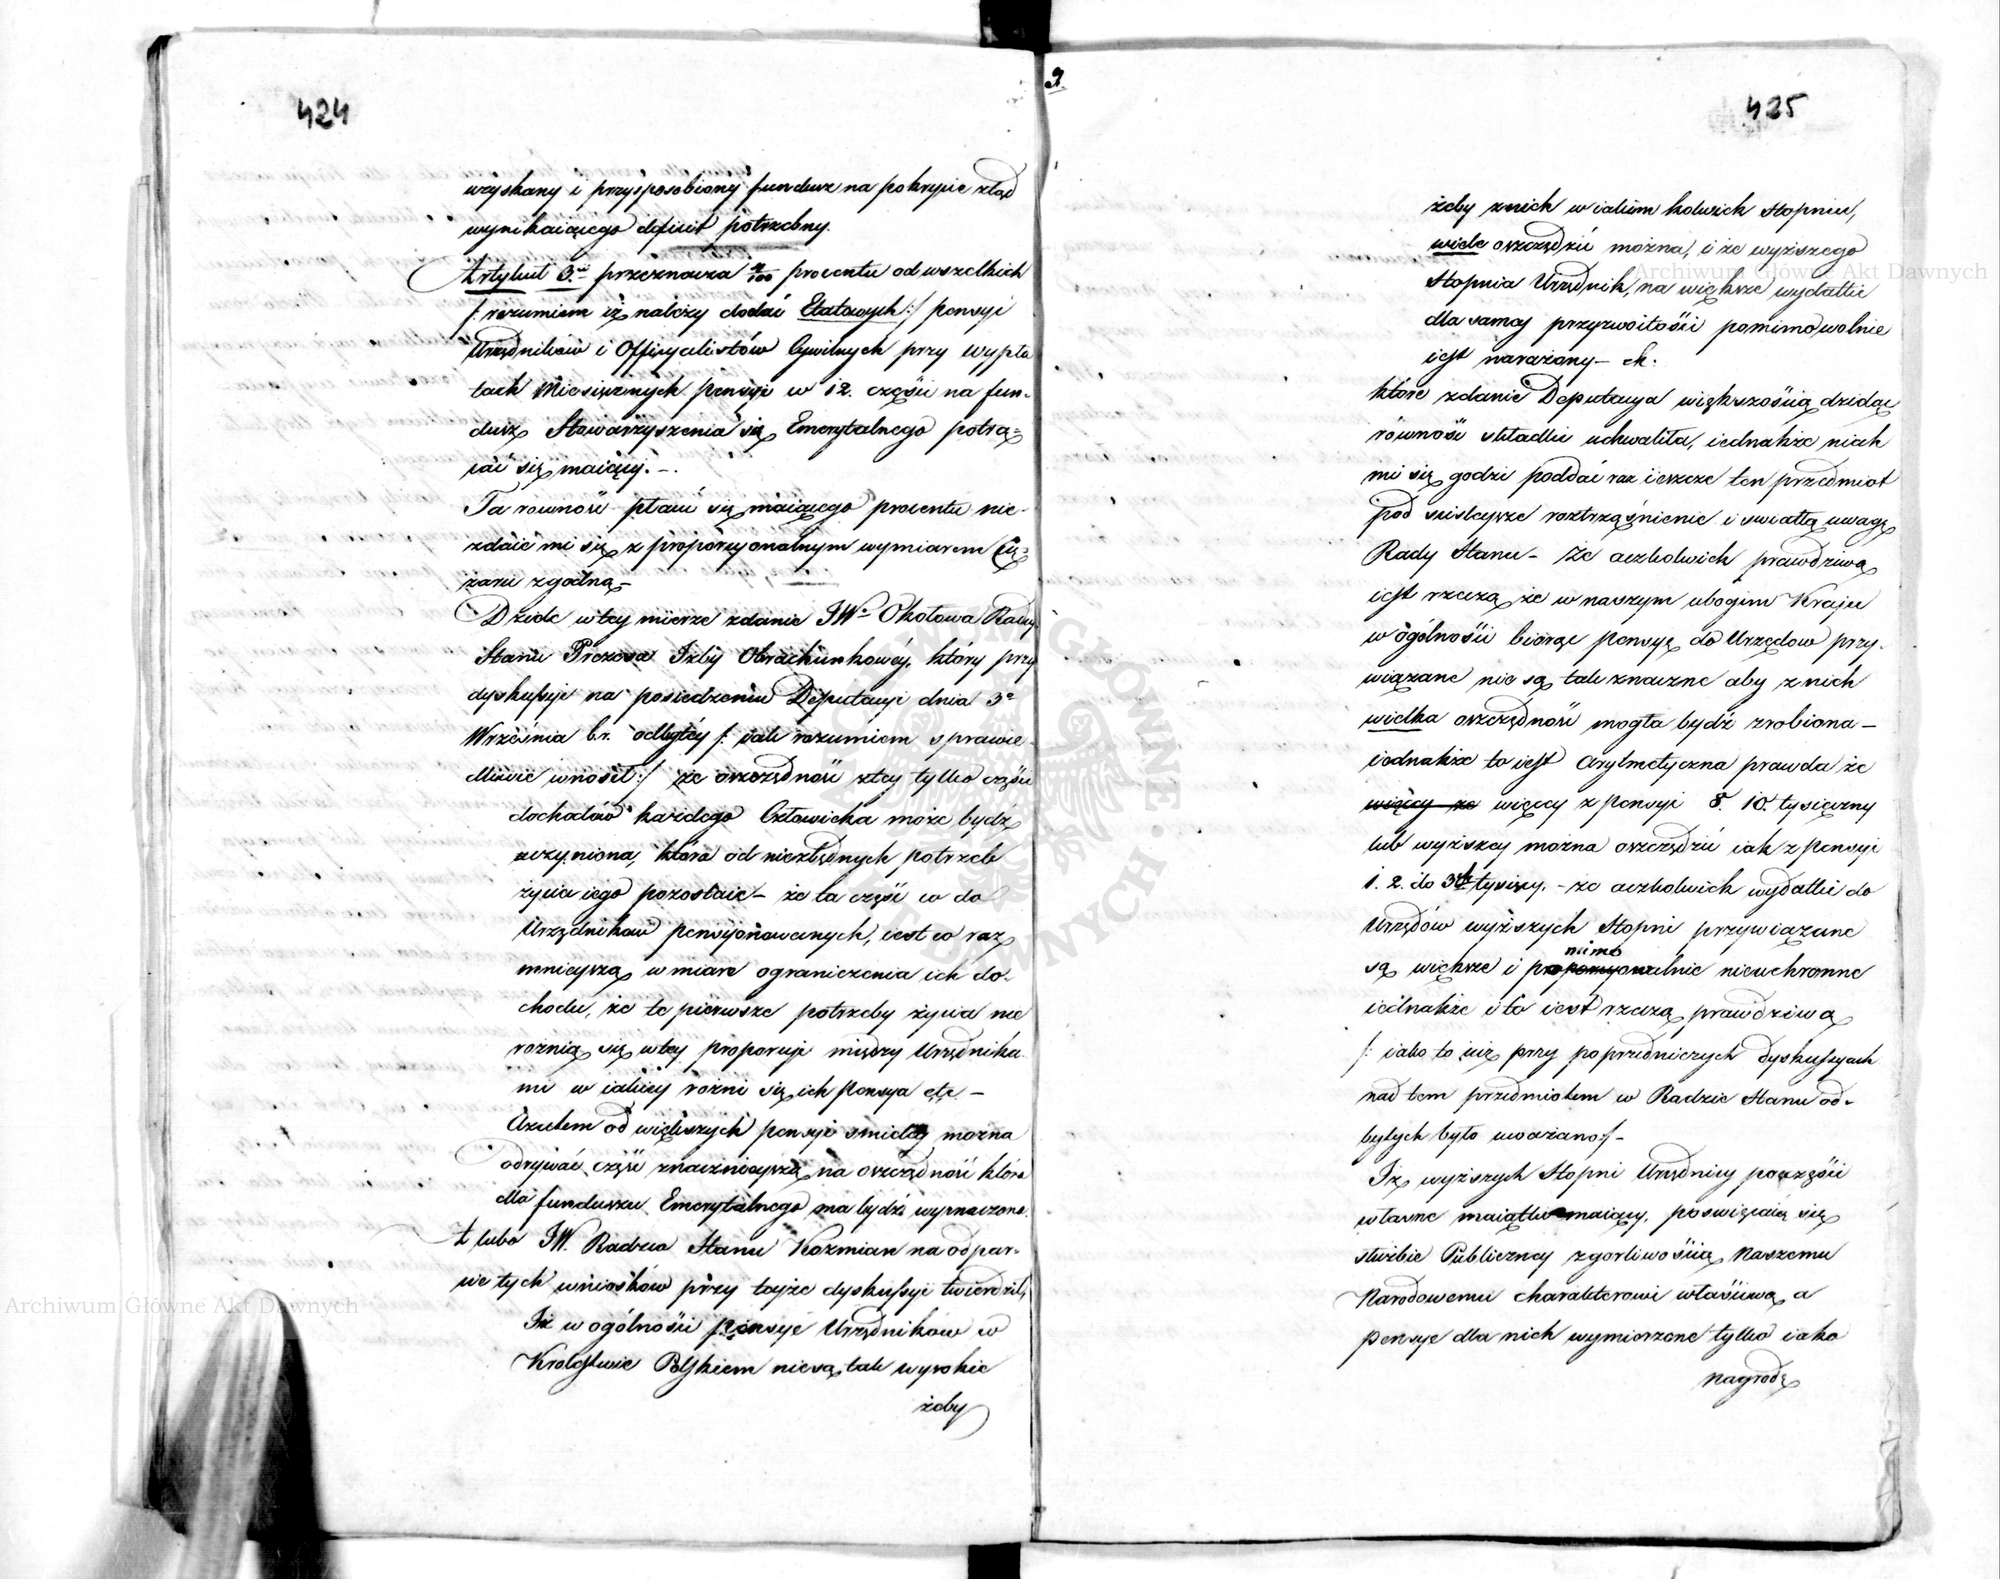 424
wzyskany i przysposobiony fundusz na pokrycie ztąd
wynikaiącego deficit potrzebny.
Artykuł 3ci przeznacza 4/100 procentu od wszelkich
/: rozumiem iż należy dodać Etatowych :/ pensyi
Urzędników i Officyalistów Cywilnych przy wypła
tach Miesięcznych pensyi w 12. części na fun-
dusz Stowarzyszenia się Emerytalnego potrą=
cać się maiący. -.
Ta rowność płacić się maiącego procentu nie-
zdaie mi się z proporcyonalnym wymiarem Cię=
żaru zgodną -
Dzielę w tey mierze zdanie JWo Okołowa Radcy
Stanu Prezesa Izby Obrachunkowéy, który przy
dyskussyi na posiedzeniu Deputacyi dnia 3o
Września b.r. odbytéy /: iak rozumiem sprawie-
dliwie wnosił :/ że oszczędność z téy tylko części
dochodów każdego Człowieka może bydź
uczyniona, która od niezbędnych potrzeb
życia iego pozostaie - że ta część co do
Urzędnikow pensyonowanych, iest co raz
mnieyszą w miarę ograniczenia ich do-
chodu, że te pierwsze potrzeby życia nie
roznią się w tey proporcyi między Urzędnika-
mi w iakiéy rożni się ich Pensya etc -
Azatem od większych pensyi smieléy można
odrywać część znacznieyszą na oszczędność która
dla funduszu Emerytalnego ma bydź wyznaczona.
A lubo JW. Radzca Stanu Kozmian na odpar-
cie tych wniosków przy teyże dyskussyi twierdził,
Iż w ogólności pensye Urzędnikow w
Krolestwie Polskiem nie są tak wysokie
żeby
9.
425
żeby z nich w iakim kolwiek stopniu,
wiele oszczędzić można, i że wyższego
Stopnia Urzędnik, na większe wydatki
dla samey przyzwoitości pomimowolnie
iest narażony -
które zdanie Deputacya większością dzieląc
równość składki uchwaliła, iednakże niech
mi się godzi poddać raz ieszcze ten przedmiot
pod scisleysze roztrząśnienie i swiatłą uwagę
Rady Stanu - że aczkolwiek prawdziwą
iest rzeczą że w naszym ubogim Kraju
w ogólności biorąc pensyę do Urzędow przy-
wiązane nie są tak znaczne aby z nich
wielka oszczędność mogła bydź zrobiona -
iednakże to iest Arytmetyczna prawda że
więcey ze więcey z pensyi 8. 10. tysięczny
lub wyższey można oszczędzić iak z pensyi
1. 2. do 3ch tysięcy. - że aczkolwiek wydatki do
Urzędów wyższych Stopni przywiązane
nimo
są większe i proporcyonalnie nieuchronne
iednakże i to iest rzeczą prawdziwą
/: iako to iuż przy poprzedniczych dyskussyach
nad tem przedmiotem w Radzie Stanu od-
bytych było uważano :/ -
Iż wyższych Stopni Urzędnicy po części
własne maiątki maiący, poswięcaią się
służbie Publiczney z gorliwością Naszemu
Narodowemu charakterowi właściwą a
pensye dla nich wymierzone tylko iako
nagrodę
Archiwum Główne Akt Dawnych
Archiwum Główne Akt Dawnych